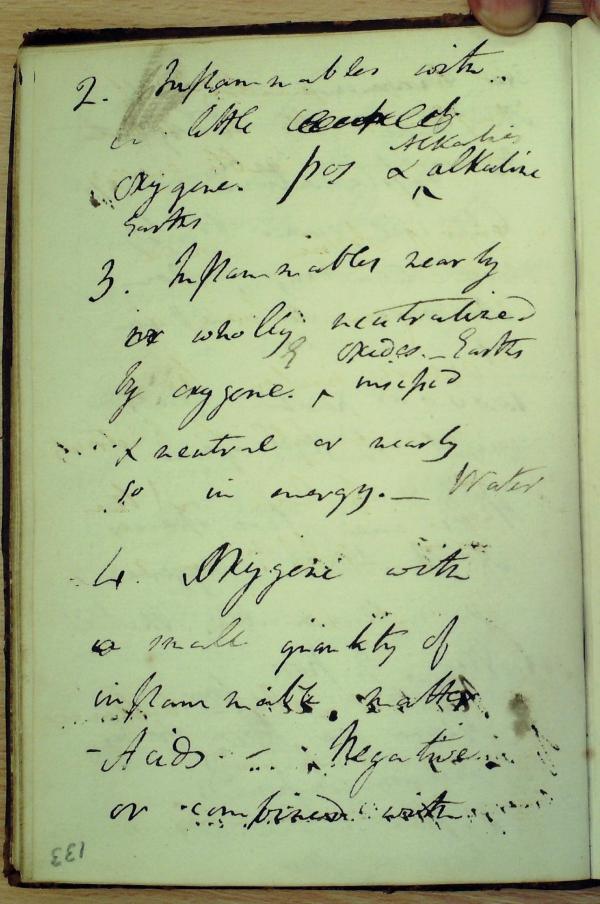 2. Inflammables with
a little
Alkalies
oxygene. pos & alkaline
Earths
3. Inflammables nearly
or wholly neutralized
& oxides. _ Earths
by oxygene. ^ insipid
& neutral or nearly
so in energy. _ Water
4. Oxygene with
a small quantity of
inflammable matter
- Acids - Negative
or combined with
133